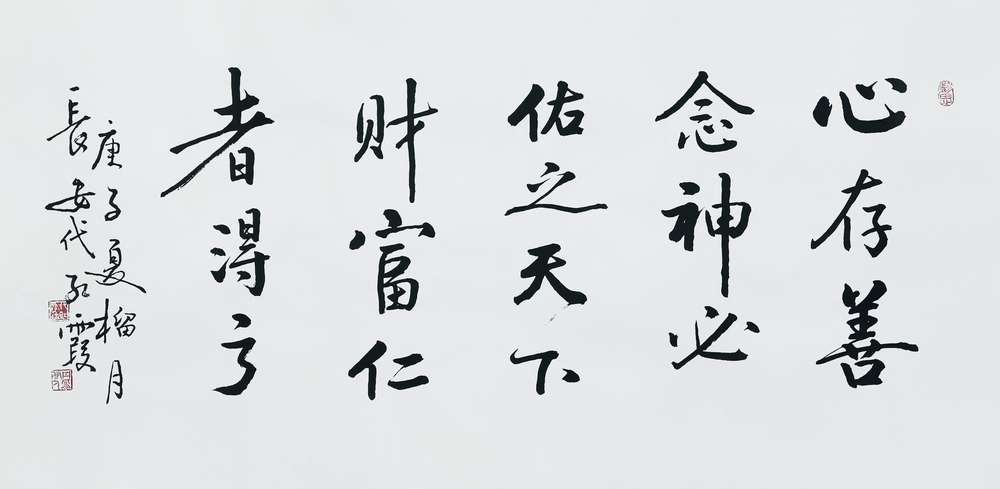 心存善
念神必
佑之天下
财富仁
者得之
庚子夏榴月
長安代红霞